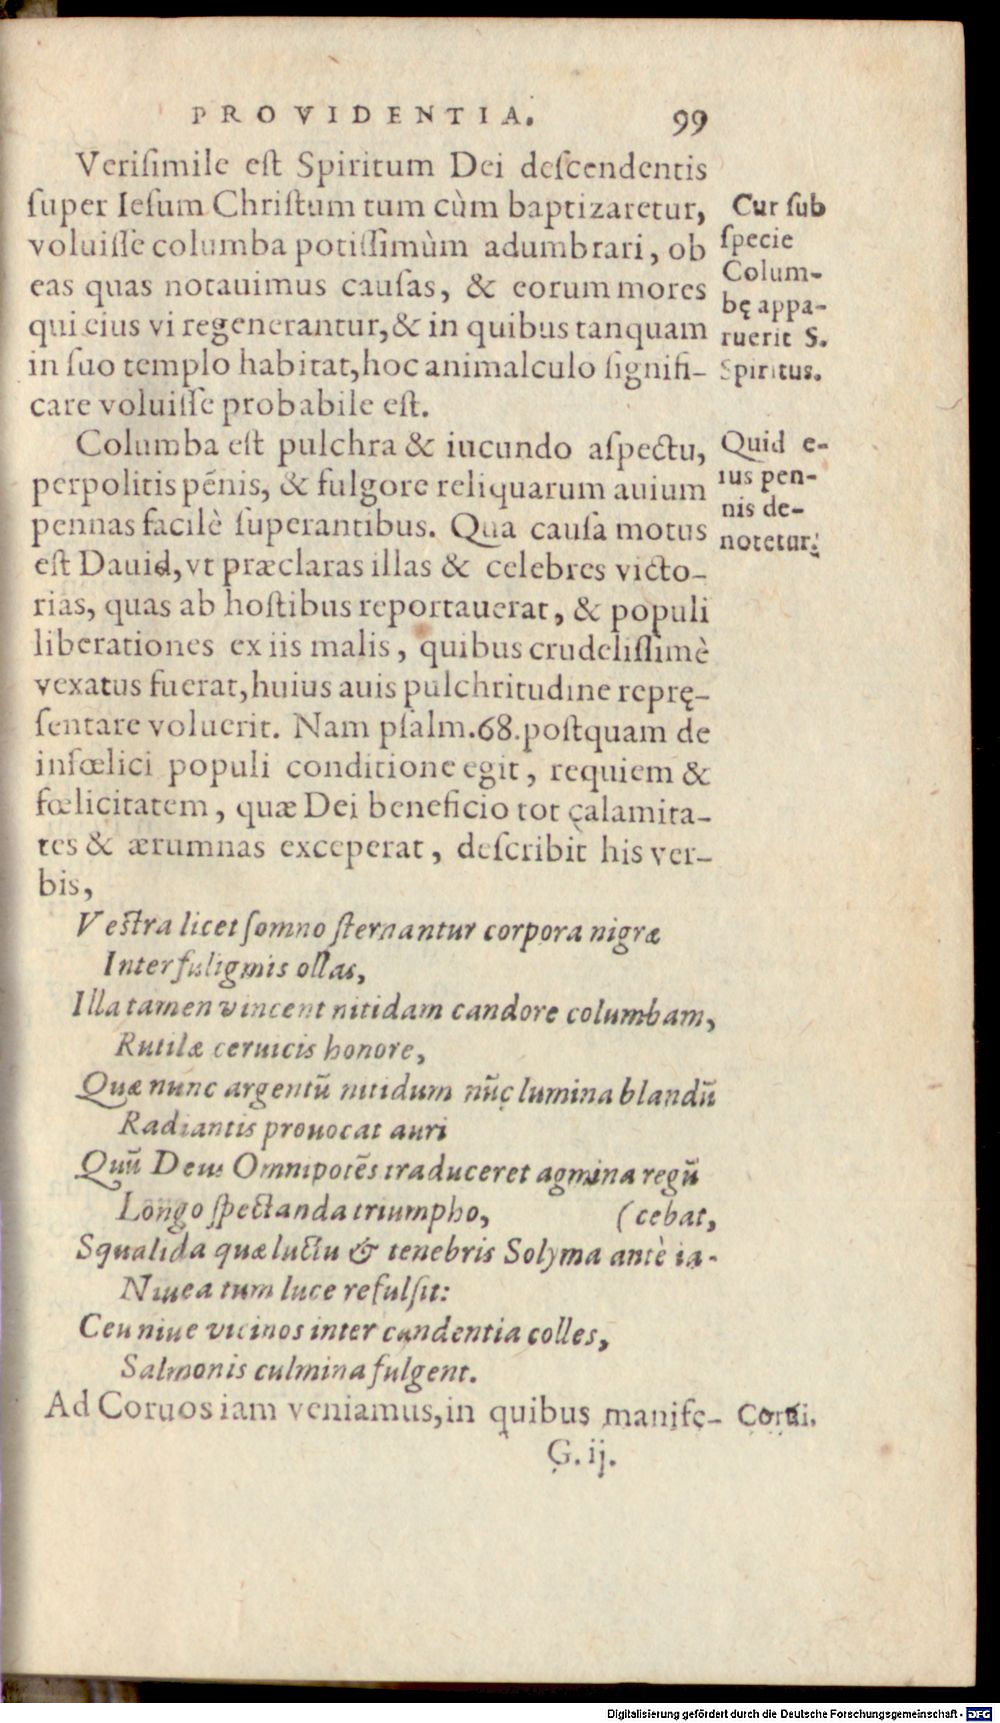 PROVIDENTIA. 99
Veriſimile eſt Spiritum Dei deſcendentis
ſuper Ieſum Chriſtum tum cùm baptizaretur,
voluiſſe columba potiſſimùm adumbrari, ob
eas quas notauimus cauſas, & eorum mores
qui eius vi regenerantur, & in quibus tanquam
in ſuo templo habitat, hoc animalculo ſignifi-
care voluiſſe probabile eſt.
Cur ſub
ſpecie
Colum-
bę appa-
ruerit S.
Spiritus.
Columba eſt pulchra & iucundo aſpectu,
perpolitis pēnis, & fulgore reliquarum auium
pennas facilè ſuperantibus. Qua cauſa motus
eſt Dauid, vt præclaras illas & celebres victo-
rias, quas ab hoſtibus reportauerat, & populi
liberationes ex iis malis, quibus crudeliſſimè
vexatus fuerat, huius auis pulchritudine reprę-
ſentare voluerit. Nam pſalm. 68. poſtquam de
infœlici populi conditione egit, requiem &
fœlicitatem, quæ Dei beneficio tot calamita-
tes & ærumnas exceperat, deſcribit his ver-
bis,
Quid e-
ius pen-
nis de-
notetur.
Veſtra licet ſomno ſternantur corpora nigræ
Inter fuliginis ollas,
Illa tamen vincent nitidam candore columbam,
Rutilæ ceruicis honore,
Quæ nunc argentū nitidum nūc lumina blandū
Radiantis prouocat auri
Quū Deus Omnipotēs traduceret agmina regū
Longo ſpectanda triumpho, (cebat,
Squalida quæ luctu & tenebris Solyma antè ia-
Niuea tum luce refulſit:
Ceu niue vicinos inter candentia colles,
Salmonis culmina fulgent.
Ad Coruos iam veniamus, in quibus manife-
Corui.
G. ij.
Digitalisierung gefördert durch die Deutsche Forschungsgemeinschaft - DFG